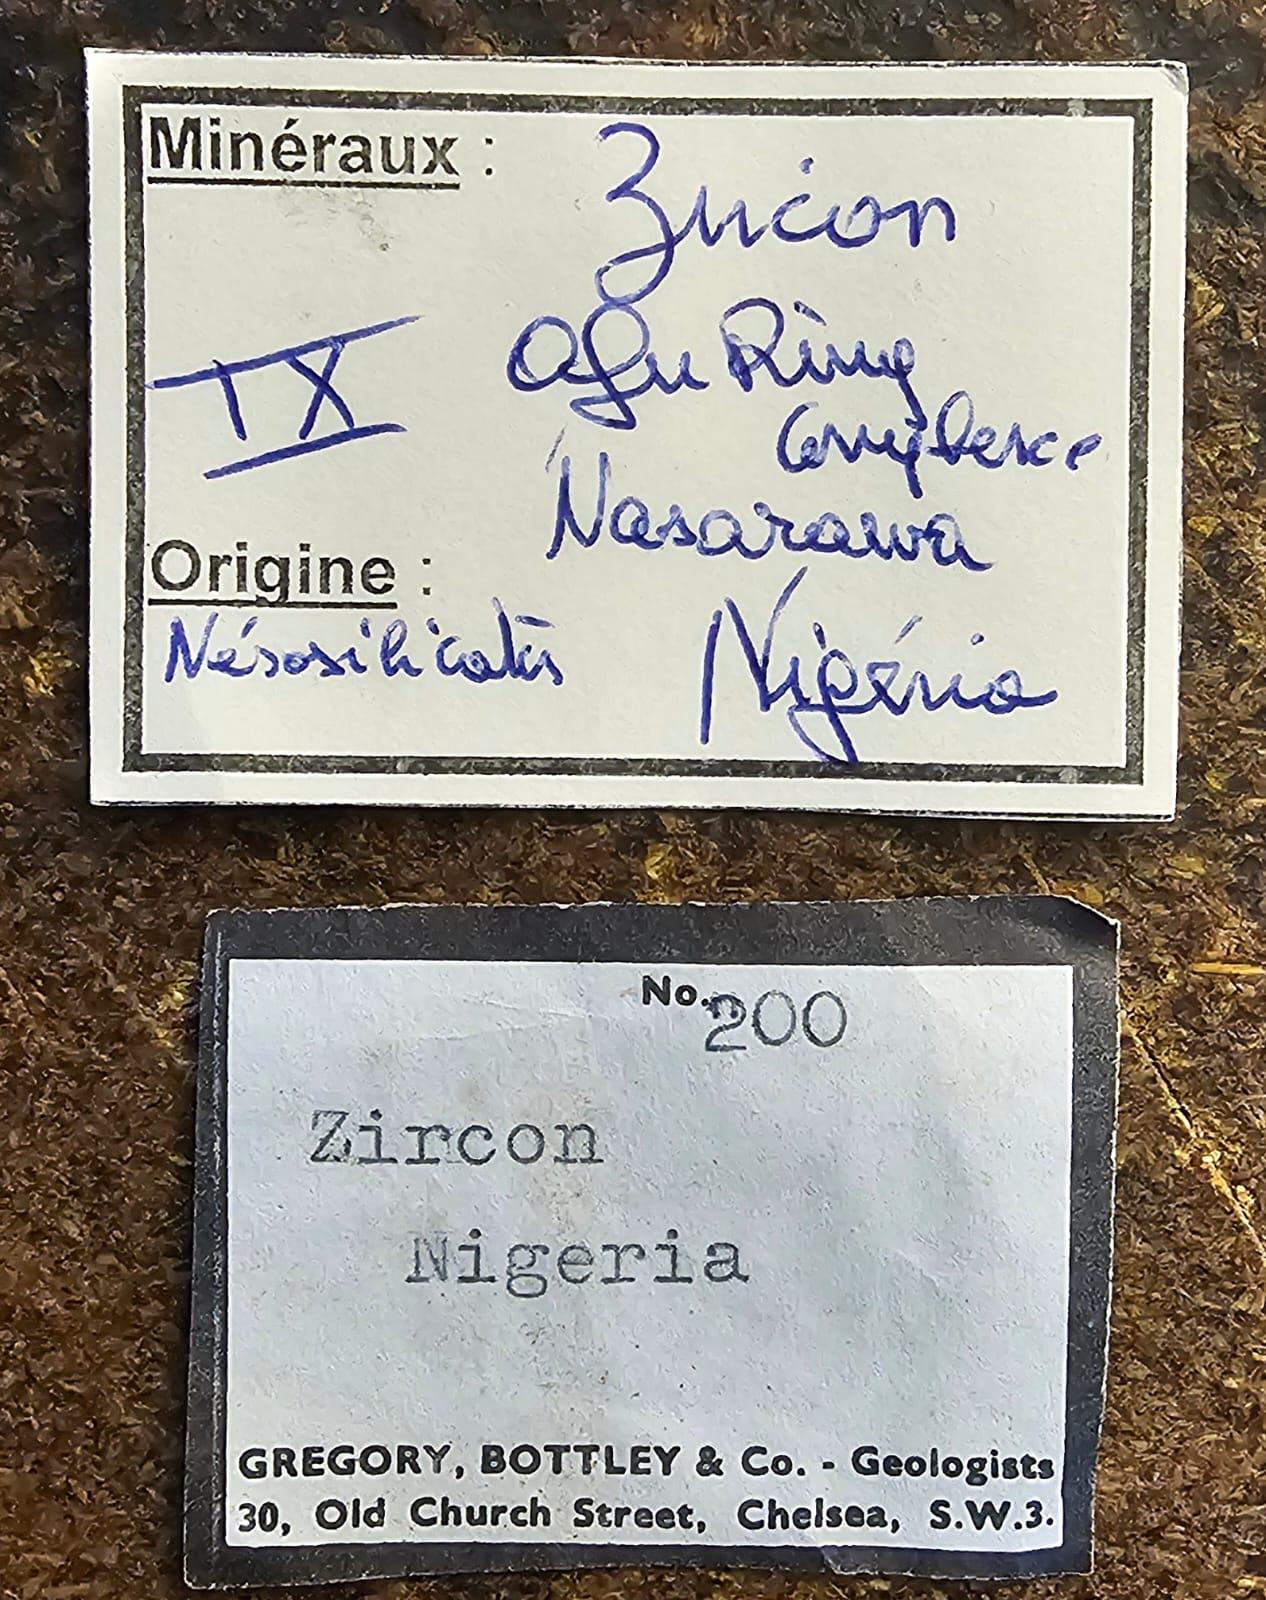 Minéraux : Zircon
IX
Afu Ring
Complexe
Nasarawa
Origine :
Nésosilicates
Nigéria
No. 200
Zircon
Nigeria
GREGORY, BOTTLEY & Co. - Geologists
30, Old Church Street, Chelsea, S.W.3.